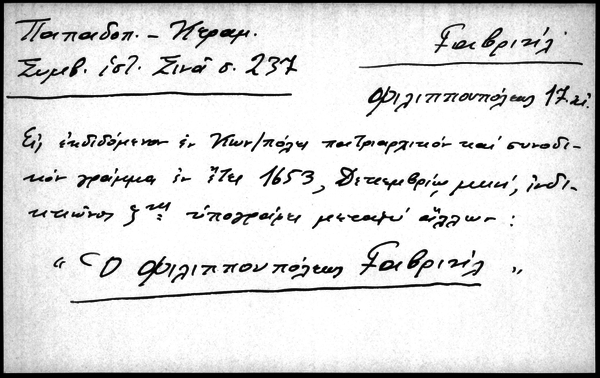 Παπαδοπ. - Κεραμ.
Συμβ. ἱστ. Σινᾶ σ. 237
Γαβριήλ
Φιλιππουπόλεως 17 αἰ.
Εἰς ἐκδιδόμενον ἐν Κων/πόλει πατριαρχικόν καί συνοδι-
κόν γράμμα ἐν ἔτει 1653, Δεκεμβρίῳ, μηνί, ἰνδι-
κτιῶνος ζης ὑπογράφει μεταξύ ἄλλων :
“ Ὁ Φιλιππουπόλεως Γαβριήλ „